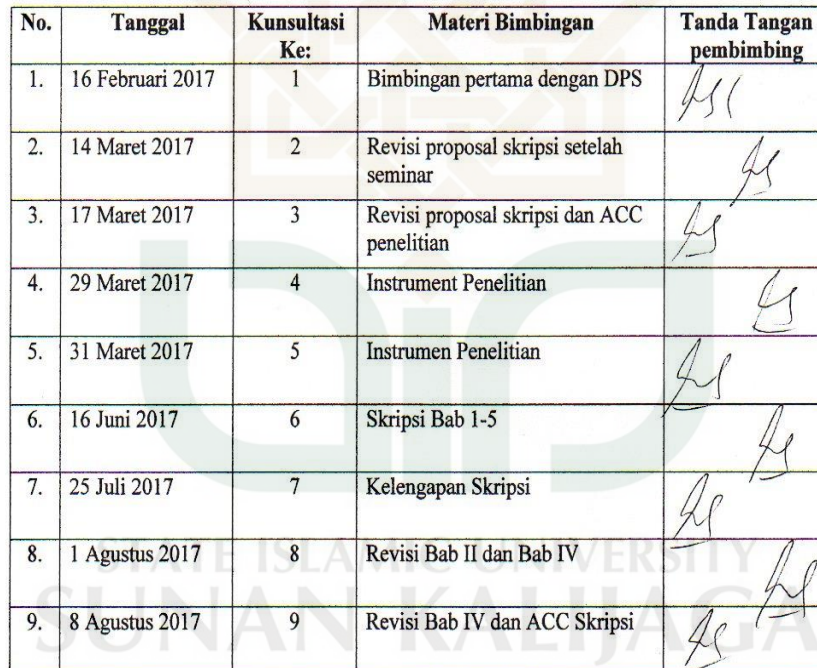 No. Tanggal Kunsultasi Ke: Materi Bimbingan Tanda Tangan pembimbing
1. 16 Februari 2017 1 Bimbingan pertama dengan DPS
2. 14 Maret 2017 2 Revisi proposal skripsi setelah seminar
3. 17 Maret 2017 3 Revisi proposal skripsi dan ACC penelitian
4. 29 Maret 2017 4 Instrument Penelitian
5. 31 Maret 2017 5 Instrumen Penelitian
6. 16 Juni 2017 6 Skripsi Bab 1-5
7. 25 Juli 2017 7 Kelengapan Skripsi
8. 1 Agustus 2017 8 Revisi Bab II dan Bab IV
STATE ISLAMIC UNIVERSITY
9. 8 Agustus 2017 9 Revisi Bab IV dan ACC Skripsi
SUNAN KALIJAGA